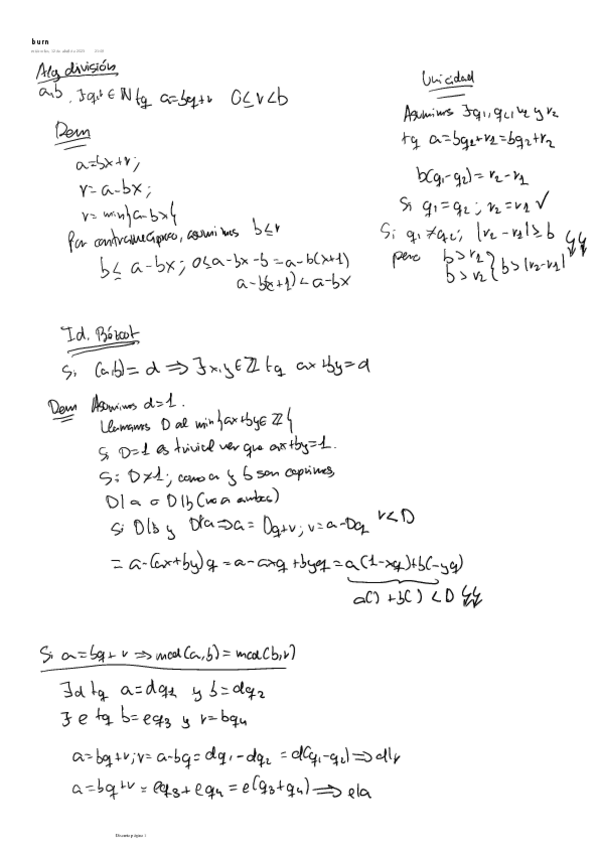 burn
Alg división
a,b, ∃q,r ∈ ℕ tq a=bq+r 0≤r<b
Dem
a=bx+r;
r=a-bx;
r=min{a-bx}
Por contrarrecíproco, asumimos b≤r
b≤a-bx; 0≤a-bx-b=a-b(x+1)
a-b(x+1)<a-bx
Unicidad
Asumimos ∃q1,q2,r1 y r2
tq a=bq1+r1=bq2+r2
b(q1-q2)=r2-r1
Si q1=q2; r2=r1 ✓
Si q1≠q2; |r2-r1|≥b
pero b>r1
b>r2 } b>|r2-r1|
Id. Bézout
Si (a,b)=d ⟹ ∃x,y∈ℤ tq ax+by=d
Dem Asumimos d=1.
Llamamos D al min{ax+by∈ℤ}
Si D=1 es trivial ver que ax+by=1.
Si D≠1; como a y b son coprimos,
D∤a o D∤b (no a ambos)
Si D|b y D∤a⟹a=Dq+r; r=a-Dq r<D
=a-(ax+by)q=a-axq+byq=a(1-xq)+b(-yq)
a()+b()<D
Si a=bq+r ⟹ mcd(a,b)=mcd(b,r)
∃d tq a=dq1 y b=dq2
∃e tq b=eq3 y r=bq4
a=bq+r; r=a-bq=dq1-dq2=d(q1-q2)⟹d|r
a=bq+r=eq3+eq4=e(q3+q4)⟹e|a